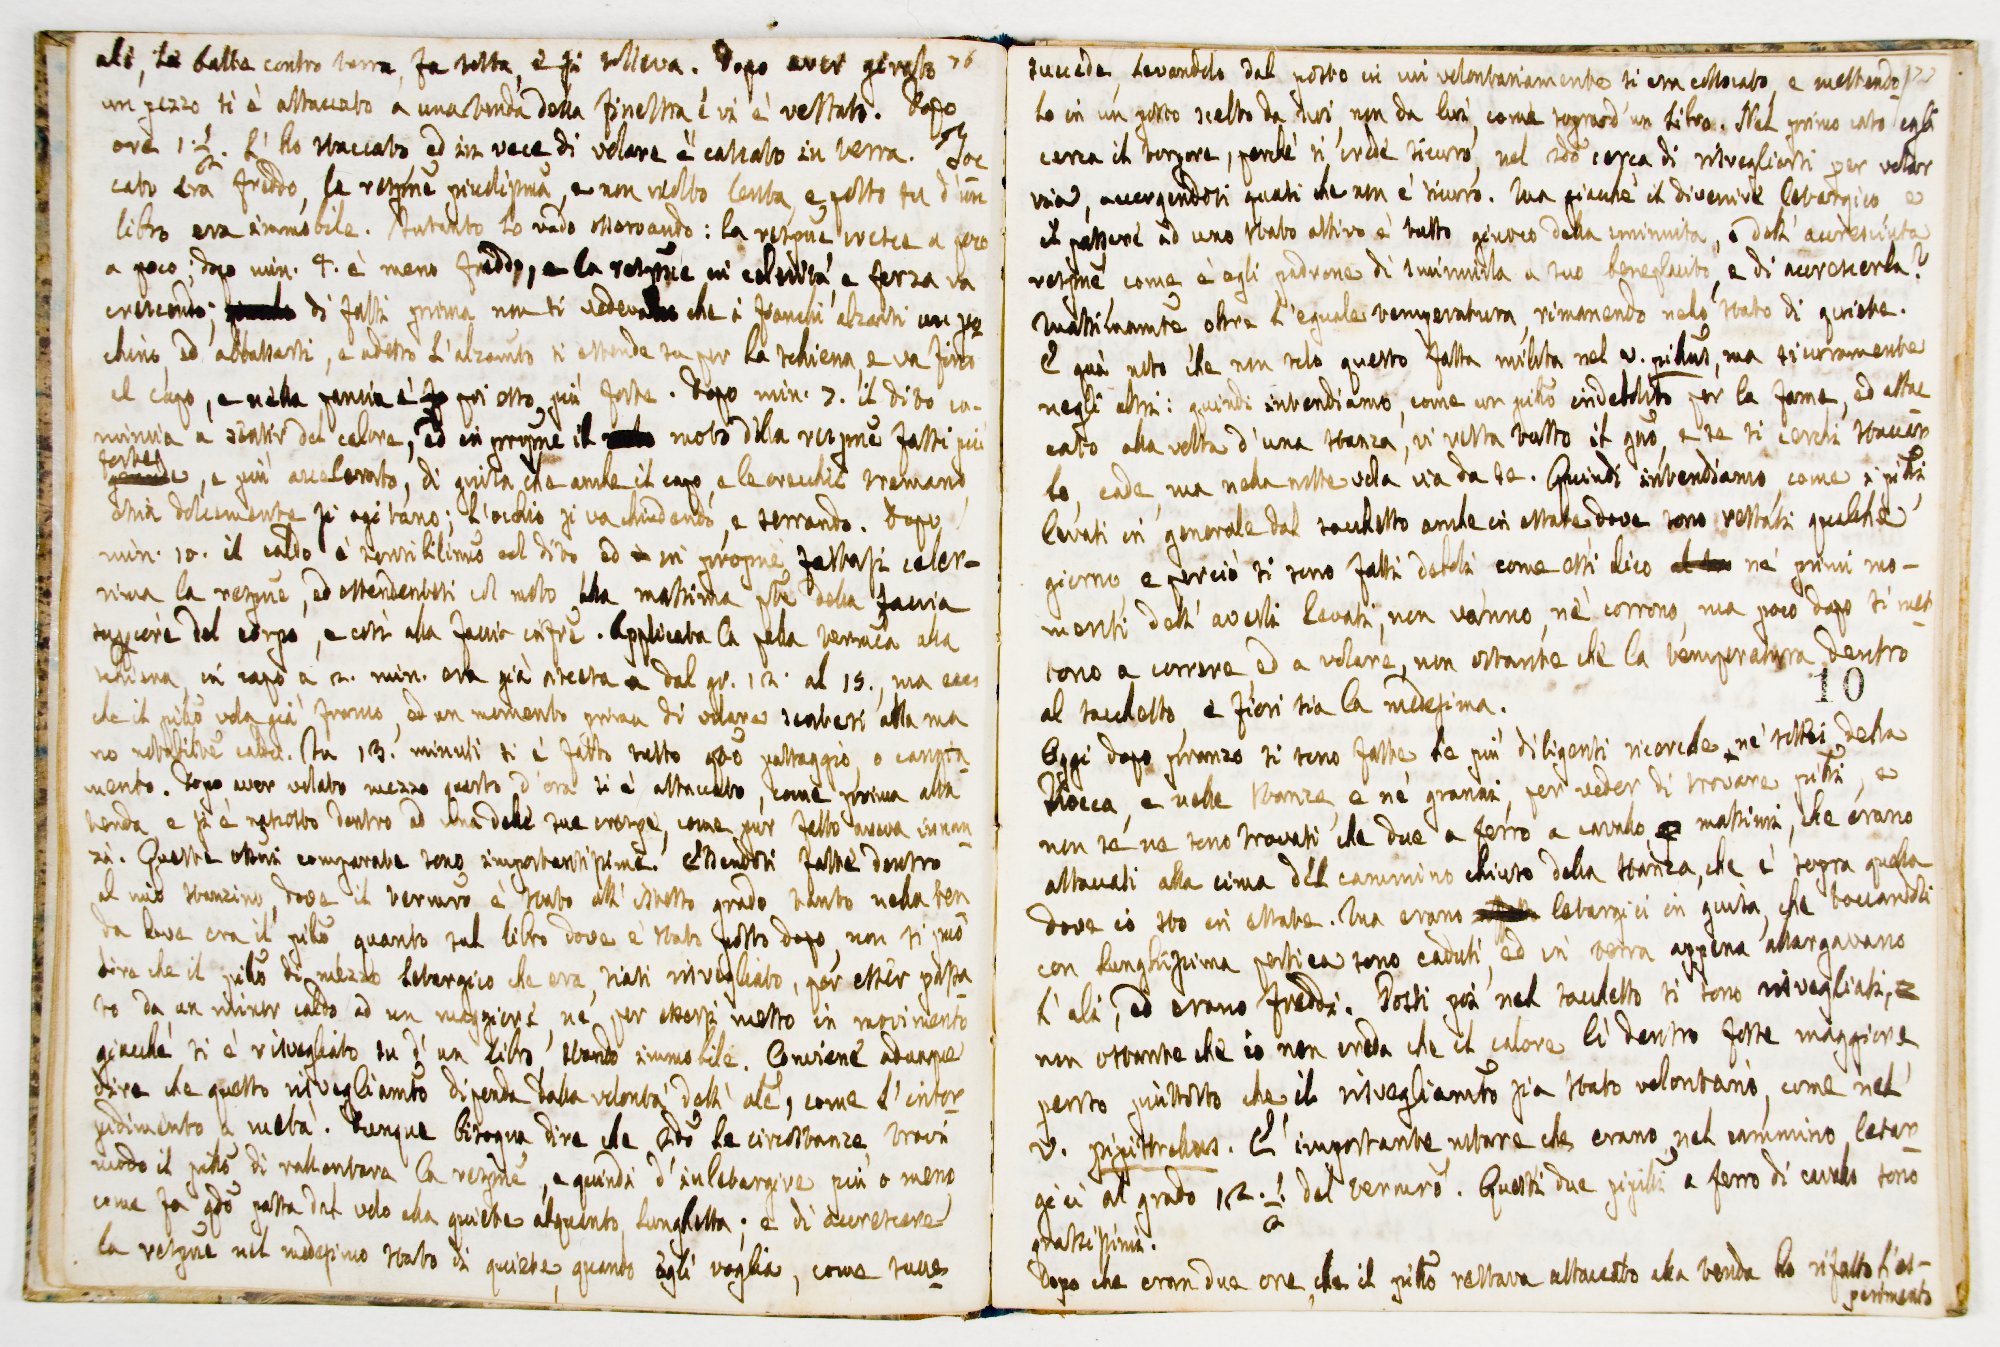 ali, le batte contro terra, fa volta, e si solleva. Dopo aver girato 76
un pezzo si è attaccato a una tenda della finestra e vi è restato. Dopo
ore 1 1/2. L' ho staccato ed in vece di volare è cascato in terra. Toc
cato era freddo, la respne piccolissima, e non molto lenta, e posto su d'un
libro era immobile. Intanto lo vado osservando: la respne cresce a poco
a poco; dopo min. 4. è meno freddo, e la respne in celerità, e forza va
crescendo; di fatti prima non si vedeva che i fianchi alzarsi un po
chino, ed abbassarsi, e adesso l'alzamto si estende su per la schiena, e va fino
al capo, e nella pancia è poi otto più forte. Dopo min. 7. il dito co-
mincia a sentir del calore, ed in propne il moto della respne fassi più
forte, e più accelerato, di guisa che anche il capo, e le orecchie tremano
ossia dolcemente si agitano; l'occhio si va chiudendo, e serrando. Dopo
min. 10. il caldo è sensibilimo al dito ed in propne fattasi celer-
rima la respne, ed estendentesi col moto alla massima pte della faccia
superiore del corpo, e così alla faccia infre. Applicata la palla termca alla
schiena, in capo a 2. min. era già ascesa dal gr. 12. al 15., ma ecco
che il pillo vola già franco, ed un momento prima di volare scotevasi alla ma
no notabilte caldo. In 13. minuti si è fatto tutto qto passaggio, o cangia
mento. Dopo aver volato mezzo quarto d'ora si è attaccato, come prima alla
tenda, e si è nascosto dentro ad una delle sue crespe, come pur fatto aveva innan
zi. Queste ossni comparate sono importantissime. Essendosi fatte dentro
al mio stanzino, dove il termro è stato all' istesso grado tanto nella ten
da dove era il pillo quanto sul libro dove è stato posto dopo, non si può
dire che il pillo di mezzo letargico che era, siasi risvegliato, per esser passa
to da un minor caldo ad un maggiore, nè per essersi messo in movimento
giacchè si è risvegliato su d' un libro, stando immobile. Conviene adunque
dire che questo risvegliamto dipenda dalla volontà dell' ale, come l'intor-
pidimento a metà. Dunque bisogna dire che 2do le circostanze, trovi
modo il pillo di rallentare la respne, e quindi d' inletargire più o meno
come fa qdo passa dal volo alla quiete alquanto lunghetta; e di accrescere
la respne nel medesimo stato di quiete, quando egli voglia, come succe-
succede, levandolo dal posto in cui volontariamente si era collocato, e mettendo 77
lo in un posto scelto da noi, non da lui, come sopra d'un libro. Nel primo caso egli
cerca il torpore, perchè si crede sicuro, nel 2do cerca di risvegliarsi per volar
via, accorgendosi quasi che non è sicuro. Ma giacchè il divenire letargico e
il passare ad uno stato attivo è tutto giuoco della sminuita, o dell' accresciuta
respne come è egli padrone di sminuirla a suo beneplacito, e di accrescerla?
Massimamte oltre l'eguale temperatura, rimanendo nello stato di quiete.
È quà noto che non solo questo fatto milita nel v. pillus, ma sicuramente
negli altri: quindi intendiamo, come un pillo indebolito per la fame, ed attac
cato alla volta d'una stanza, vi resta tutto il gno, e se si cerchi staccar
lo, cade, ma nella notte vola via da se. Quindi intendiamo come i pilli
levati in generale dal sacchetto anche in estate dove sono restati qualche
giorno e perciò si sono fatti deboli come essi dico nè primi mo-
menti dell' averli levati, non vanno, nè corrono, ma poco dopo si met
tono a correre ed a volare, non ostante che la temperatura dentro
10
al sacchetto, e fuori sia la medesima.
Oggi dopo pranzo si sono fatte le più diligenti ricerche nè sottei della
Rocca, e nelle stanze, e nè granai, per veder di trovare pilli, e
non se ne sono trovati che due a ferro a cavallo massimi, che erano
attaccati alla cima del cammino chiuso della stanza, che è sopra quella
dove io sto in estate. Ma erano letargici in guisa, che toccandoli
con lunghissima pertica sono caduti, ed in terra appena allargavano
l' ali, ed erano freddi. Posti poi nel sacchetto si sono risvegliati,
non ostante che io non creda che il calore lì dentro fosse maggiore
penso piuttosto che il risvegliamto sia stato volontario, come nel
v. pipistrellus. È importante notare che erano nel cammino letar-
gici al grado 12. 1/2 del termro. Questi due pipilli a ferro di cavallo sono
grassissimi.
Dopo che eran due ore, che il pillo restava attaccato alla tenda ho rifatto l'es-
perimento